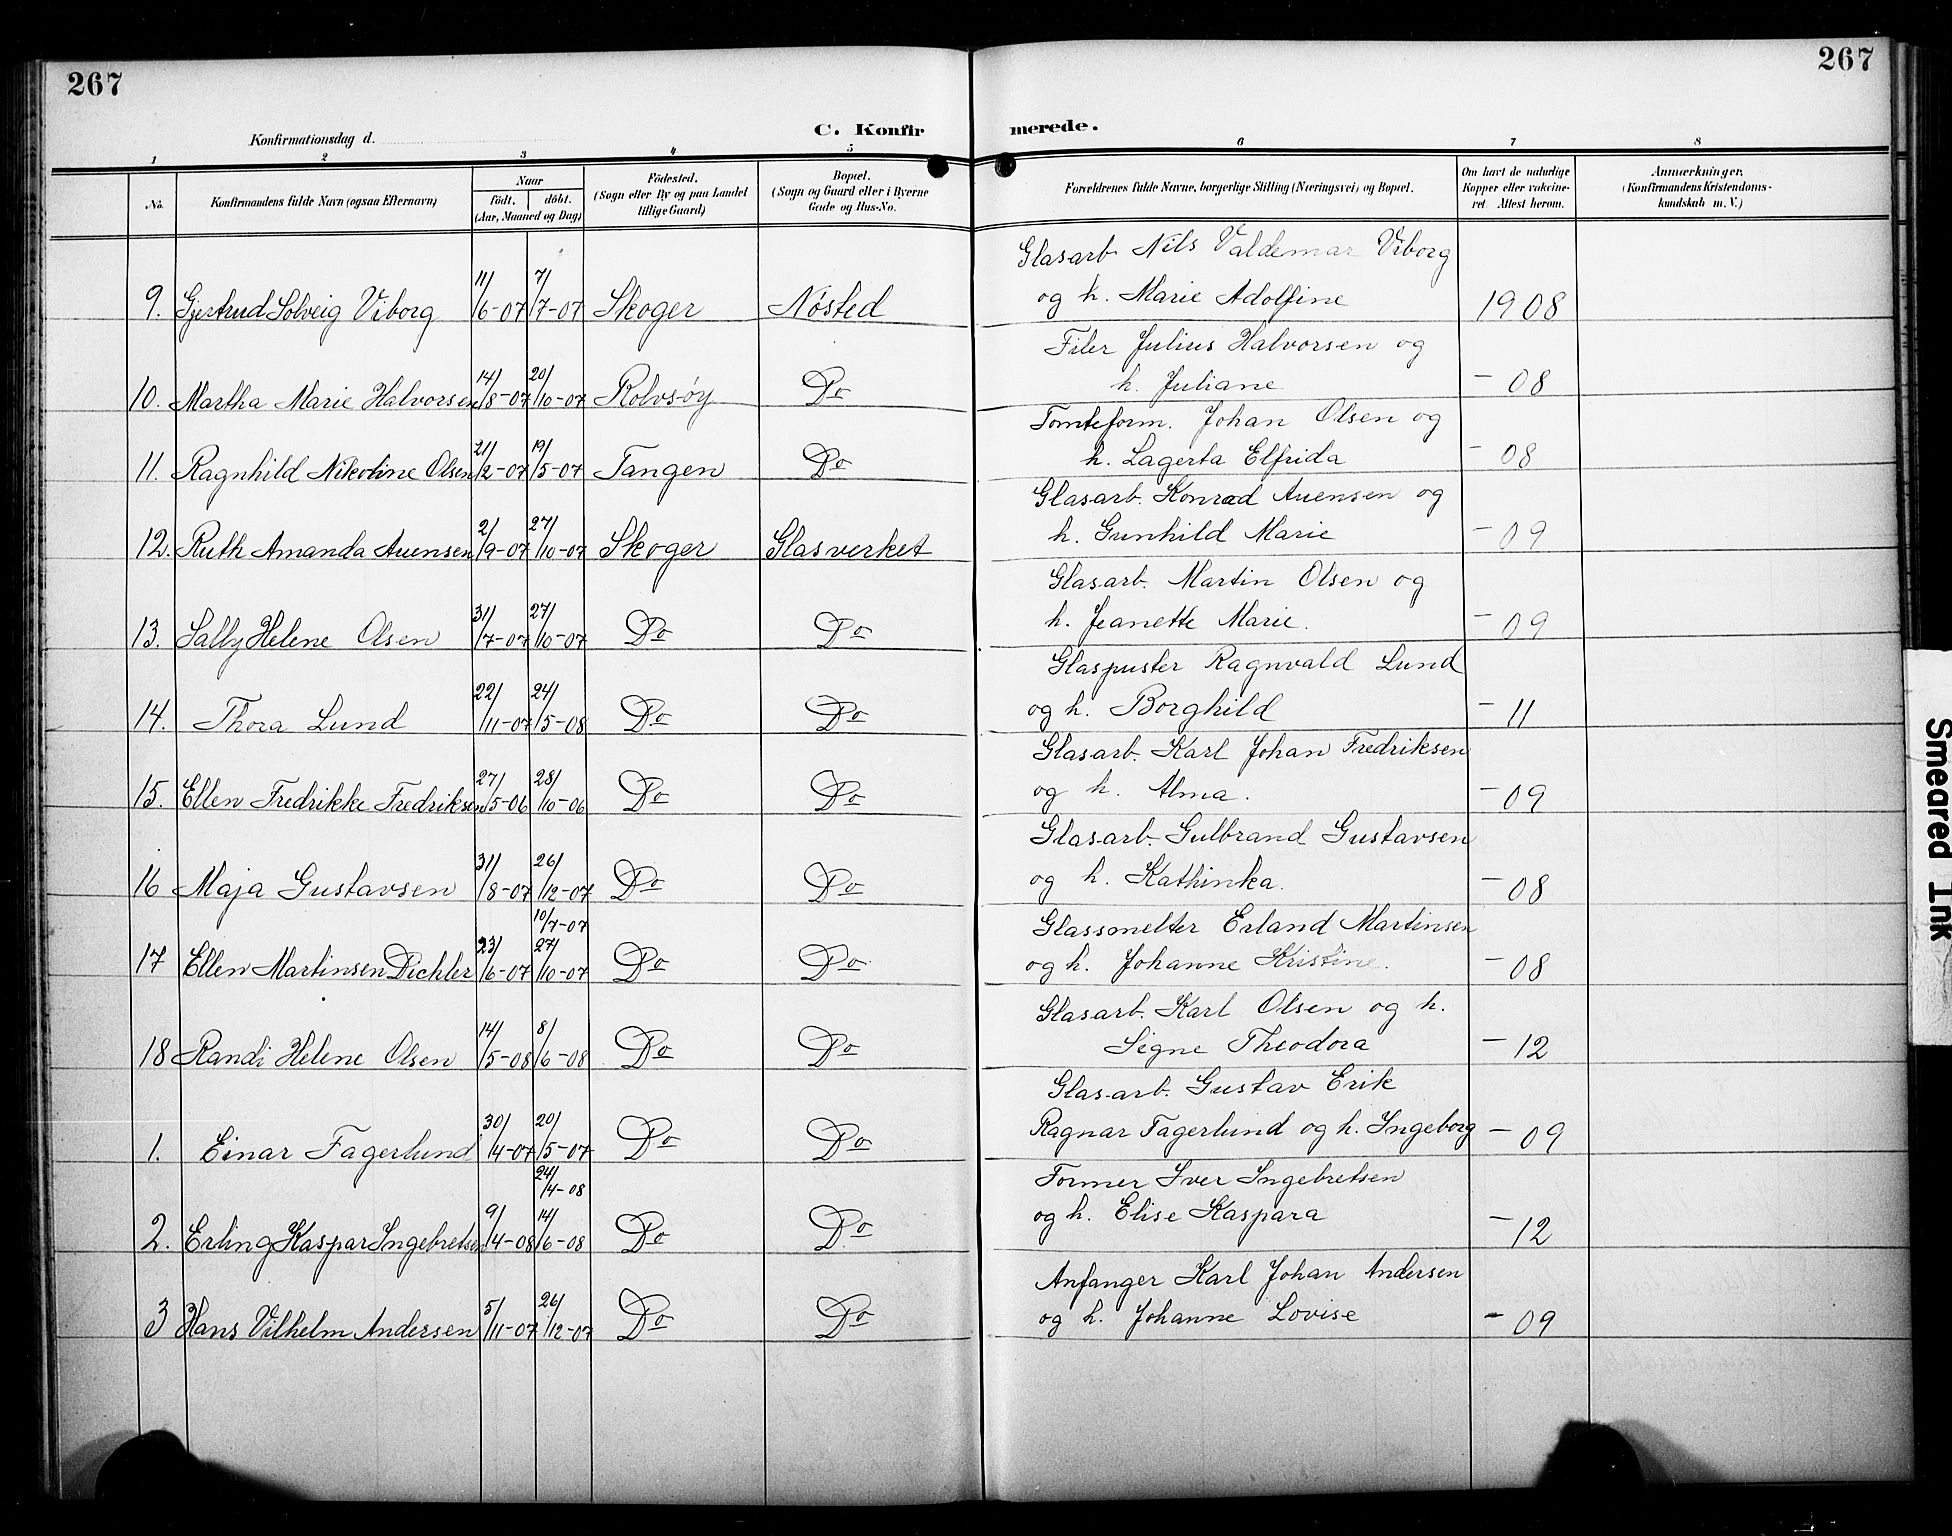 267
267
Konfirmationsdag d.
C. Konfir
merede.
1 2 3 4 5 6 7 8
No.
Konfirmandens fulde Navn (ogsaa Efternavn)
Naar
født. døbt.
(Aar, Maaned og Dag)
Fødested.
(Sogn eller By og paa Landet
tillige Gaard)
Bopæl.
(Sogn og Gaard eller i Byerne
Gade og Hus-No.
Forældrenes fulde Navne, borgerlige Stilling (Næringsvei) og Bopæl.
Om havt de naturlige
Kopper eller vakcine-
ret Attest herom.
Anmærkninger,
(Konfirmandens Kristendoms-
kundskab m. V.)
Glasarb. Nils Valdemar Viborg
9. Gjertrud Solveig Viborg 11/6-07 7/7-07 Skoger Nøsted og h. Marie Adolfine 1908
Filer Julius Halvorsen og
10. Martha Marie Halvorsen 14/8-07 20/10-07 Rolvsøy Do h. Juliane - 08
Tomteform. Johan Olsen og
11. Ragnhild Nikoline Olsen 21/2-07 19/5-07 Tangen Do h. Lagerta Elfrida - 08
Glasarb. Konrad Auensen og
12. Ruth Amanda Auensen 2/9-07 27/10-07 Skoger Glasverket h. Gunhild Marie - 09
Glasarb. Martin Olsen og
13. Sally Helene Olsen 31/7-07 27/10-07 Do Do h. Jeanette Marie. - 09
Glaspuster Ragnvald Lund
14. Thora Lund 22/11-07 24/5-08 Do Do og h. Borghild - 11
Glasarb. Karl Johan Fredriksen
15. Ellen Fredrikke Fredriksen 27/5-06 28/10-06 Do Do og h. Alma. - 09
Glasarb. Gulbrand Gustavsen
16 Maja Gustavsen 31/8-07 26/12-07 Do Do og h. Kathinka. - 08
10/7-07 Glassmelter Erland Martinsen
17 Ellen Martinsen Pichler 23/6-07 27/10-07 Do Do og h. Johanne Kristine. - 08
Glasarb. Karl Olsen og h.
18 Randi Helene Olsen 14/5-08 8/6-08 Do Do Signe Theodora - 12
Glasarb. Gustav Erik
1. Einar Fagerlund 30/4-07 20/5-07 Do Do Ragnar Fagerlund og h. Ingeborg - 09
24/4-08 Former Iver Ingebretsen
2. Erling Kaspar Ingebretsen 9/4-08 14/6-08 Do Do og h. Elise Kaspara - 12
Anfanger Karl Johan Andersen
3 Hans Vilhelm Andersen 5/11-07 26/12-07 Do Do og h. Johanne Lovise - 09
Smeared Ink